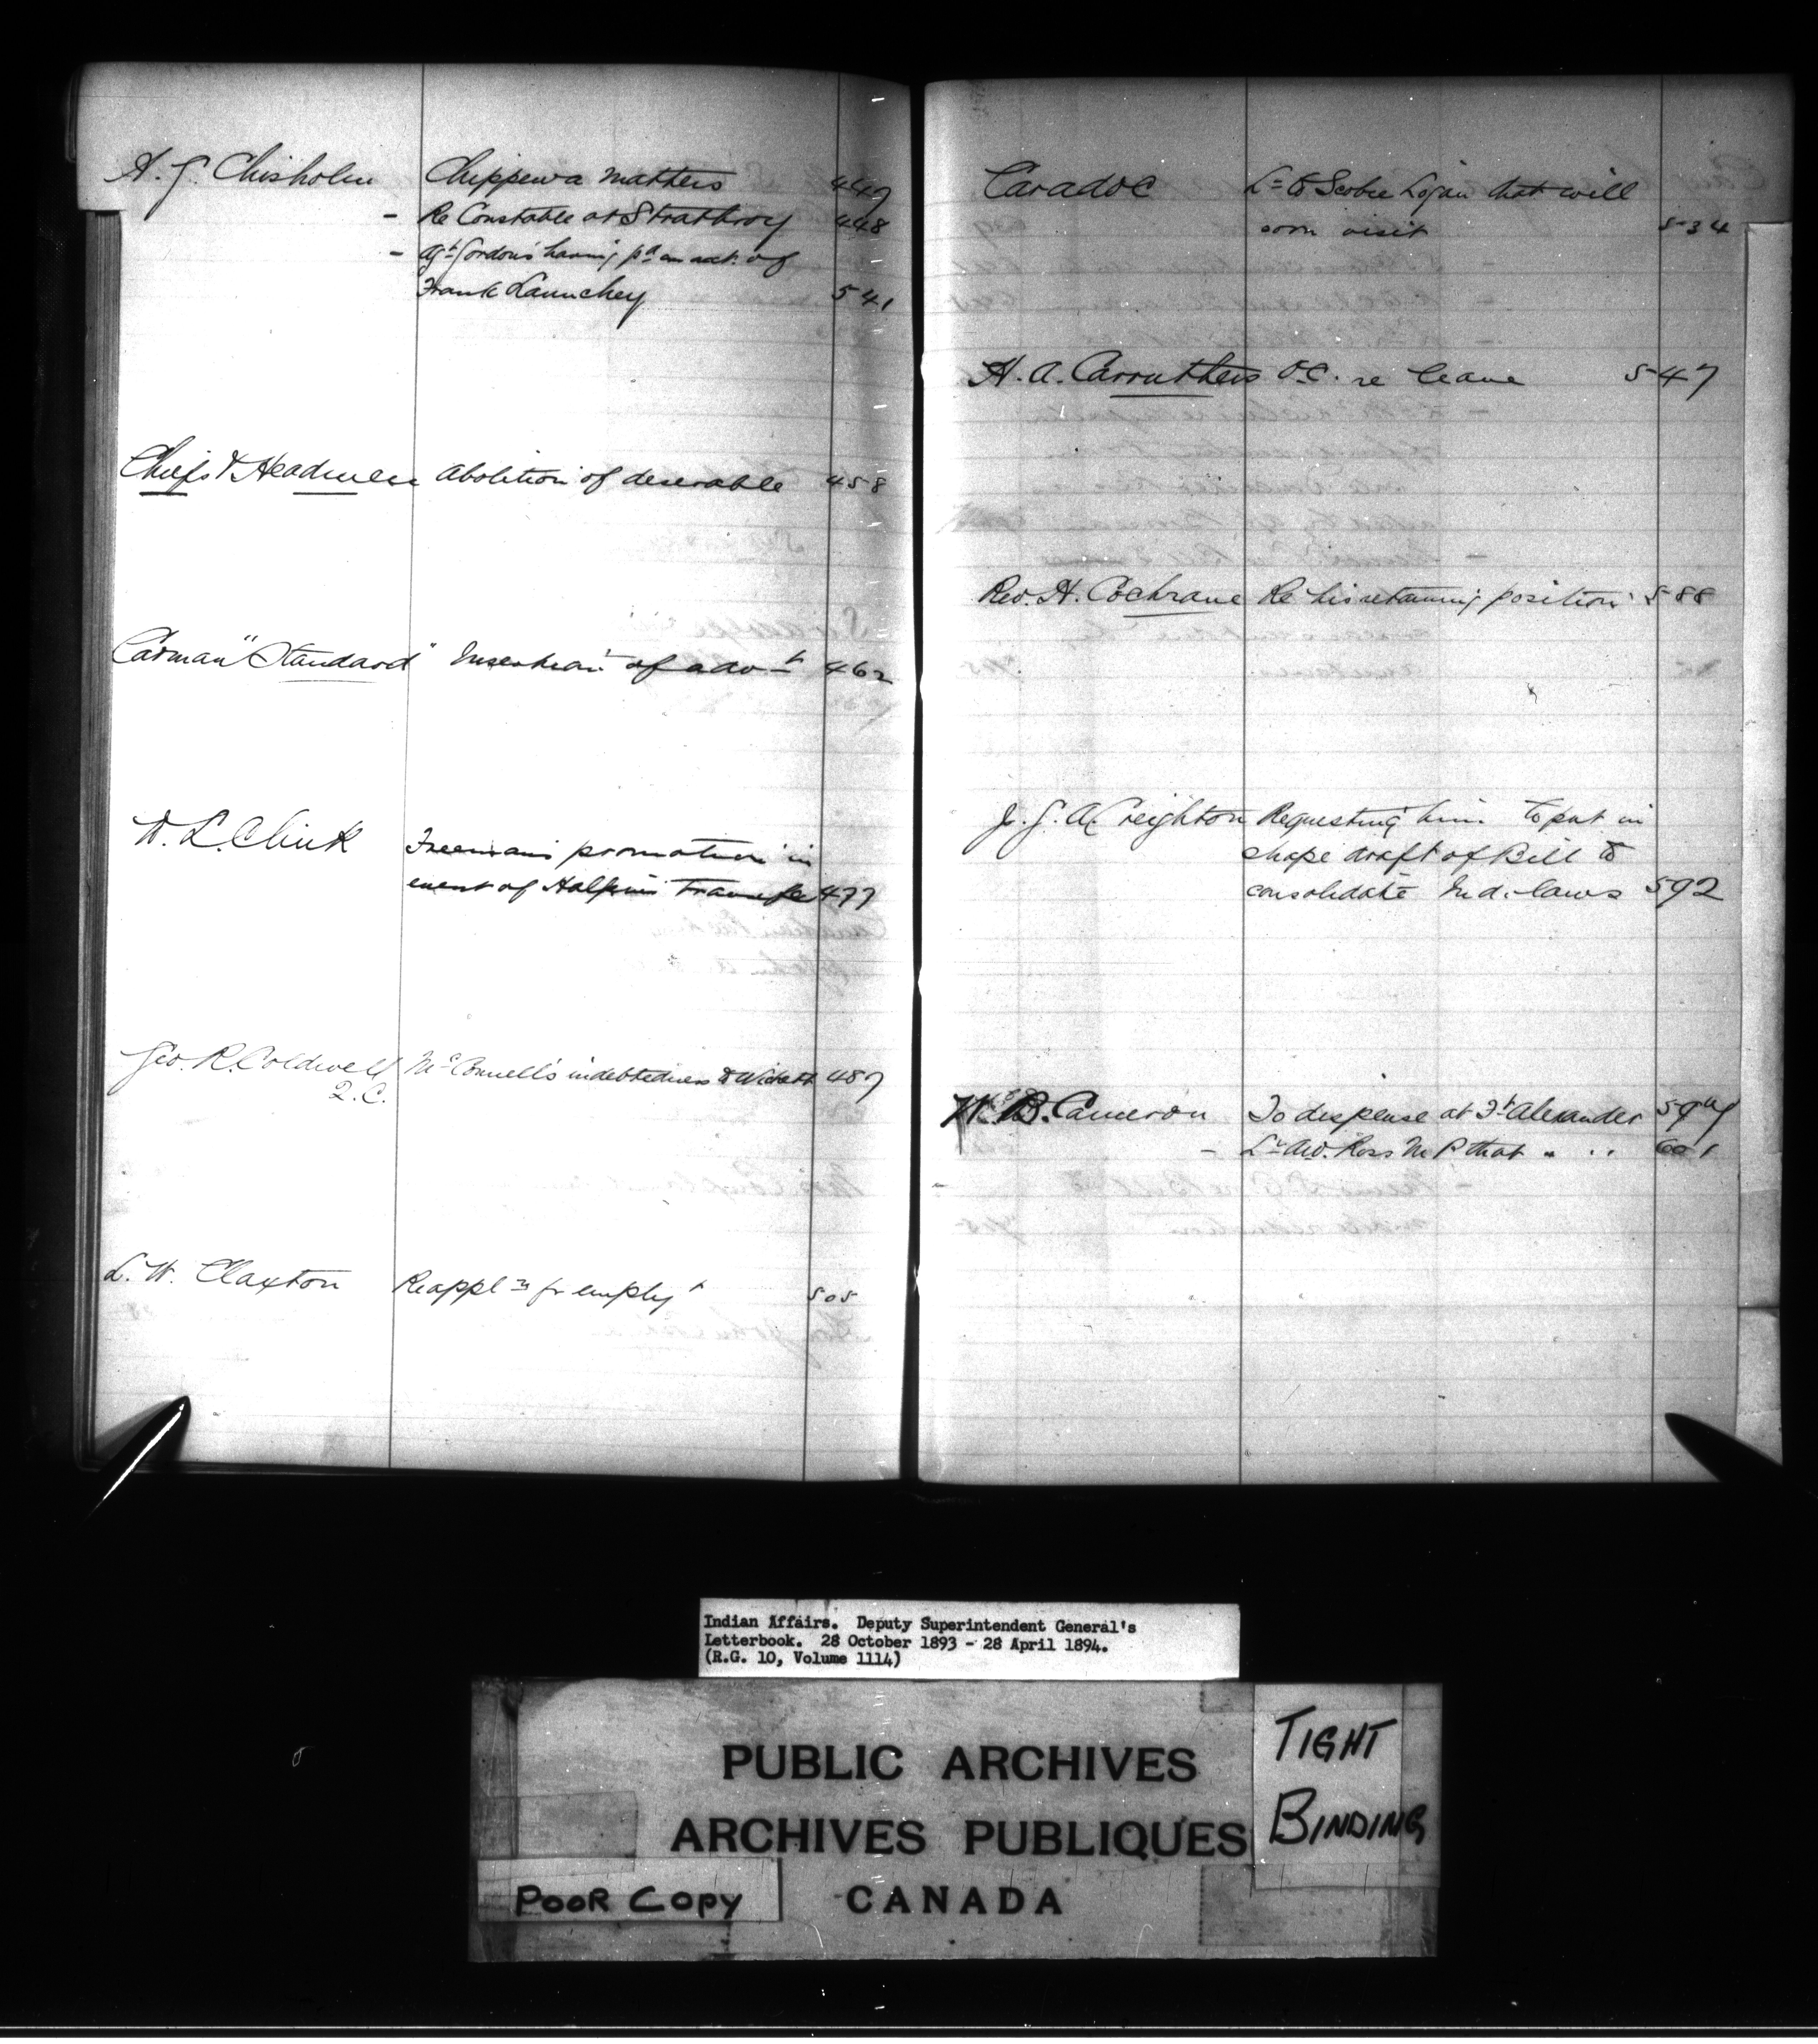 A. G. Chisholm Chippewa Matters 447
- Re Constable at Strathroy 448
- Agt Gordon's having pd an acct. of
Frank Launchey 541
Chiefs & Headmen Abolition of desirable 458
Carman "Standard" Insertion of advt 462
W. L. Clink Freeman's promotion in
event of Halpin's Transfer 477
Geo. R. Coldwell McConnell's indebtedness to Wickett 487
Q.C.
L. W. Claxton Re appln for employt 505
Caradoc Lr to Scobie Logan that will
soon visit 534
H. A. Carruthers O.C. re leave 547
Rev. H. Cochrane Re his retaining position 588
J. G. A. Creighton Requesting him to put in
shape draft of Bill to
consolidate Ind. laws 592
W. B. Cameron To dispense at Ft Alexander
- Lr Aw. Ross M P that " " 601
Indian Affairs. Deputy Superintendent General's
Letterbook. 28 October 1893 - 28 April 1894.
(R.G. 10, Volume 1114)
PUBLIC ARCHIVES
ARCHIVES PUBLIQUES
CANADA
TIGHT
BINDING
POOR COPY